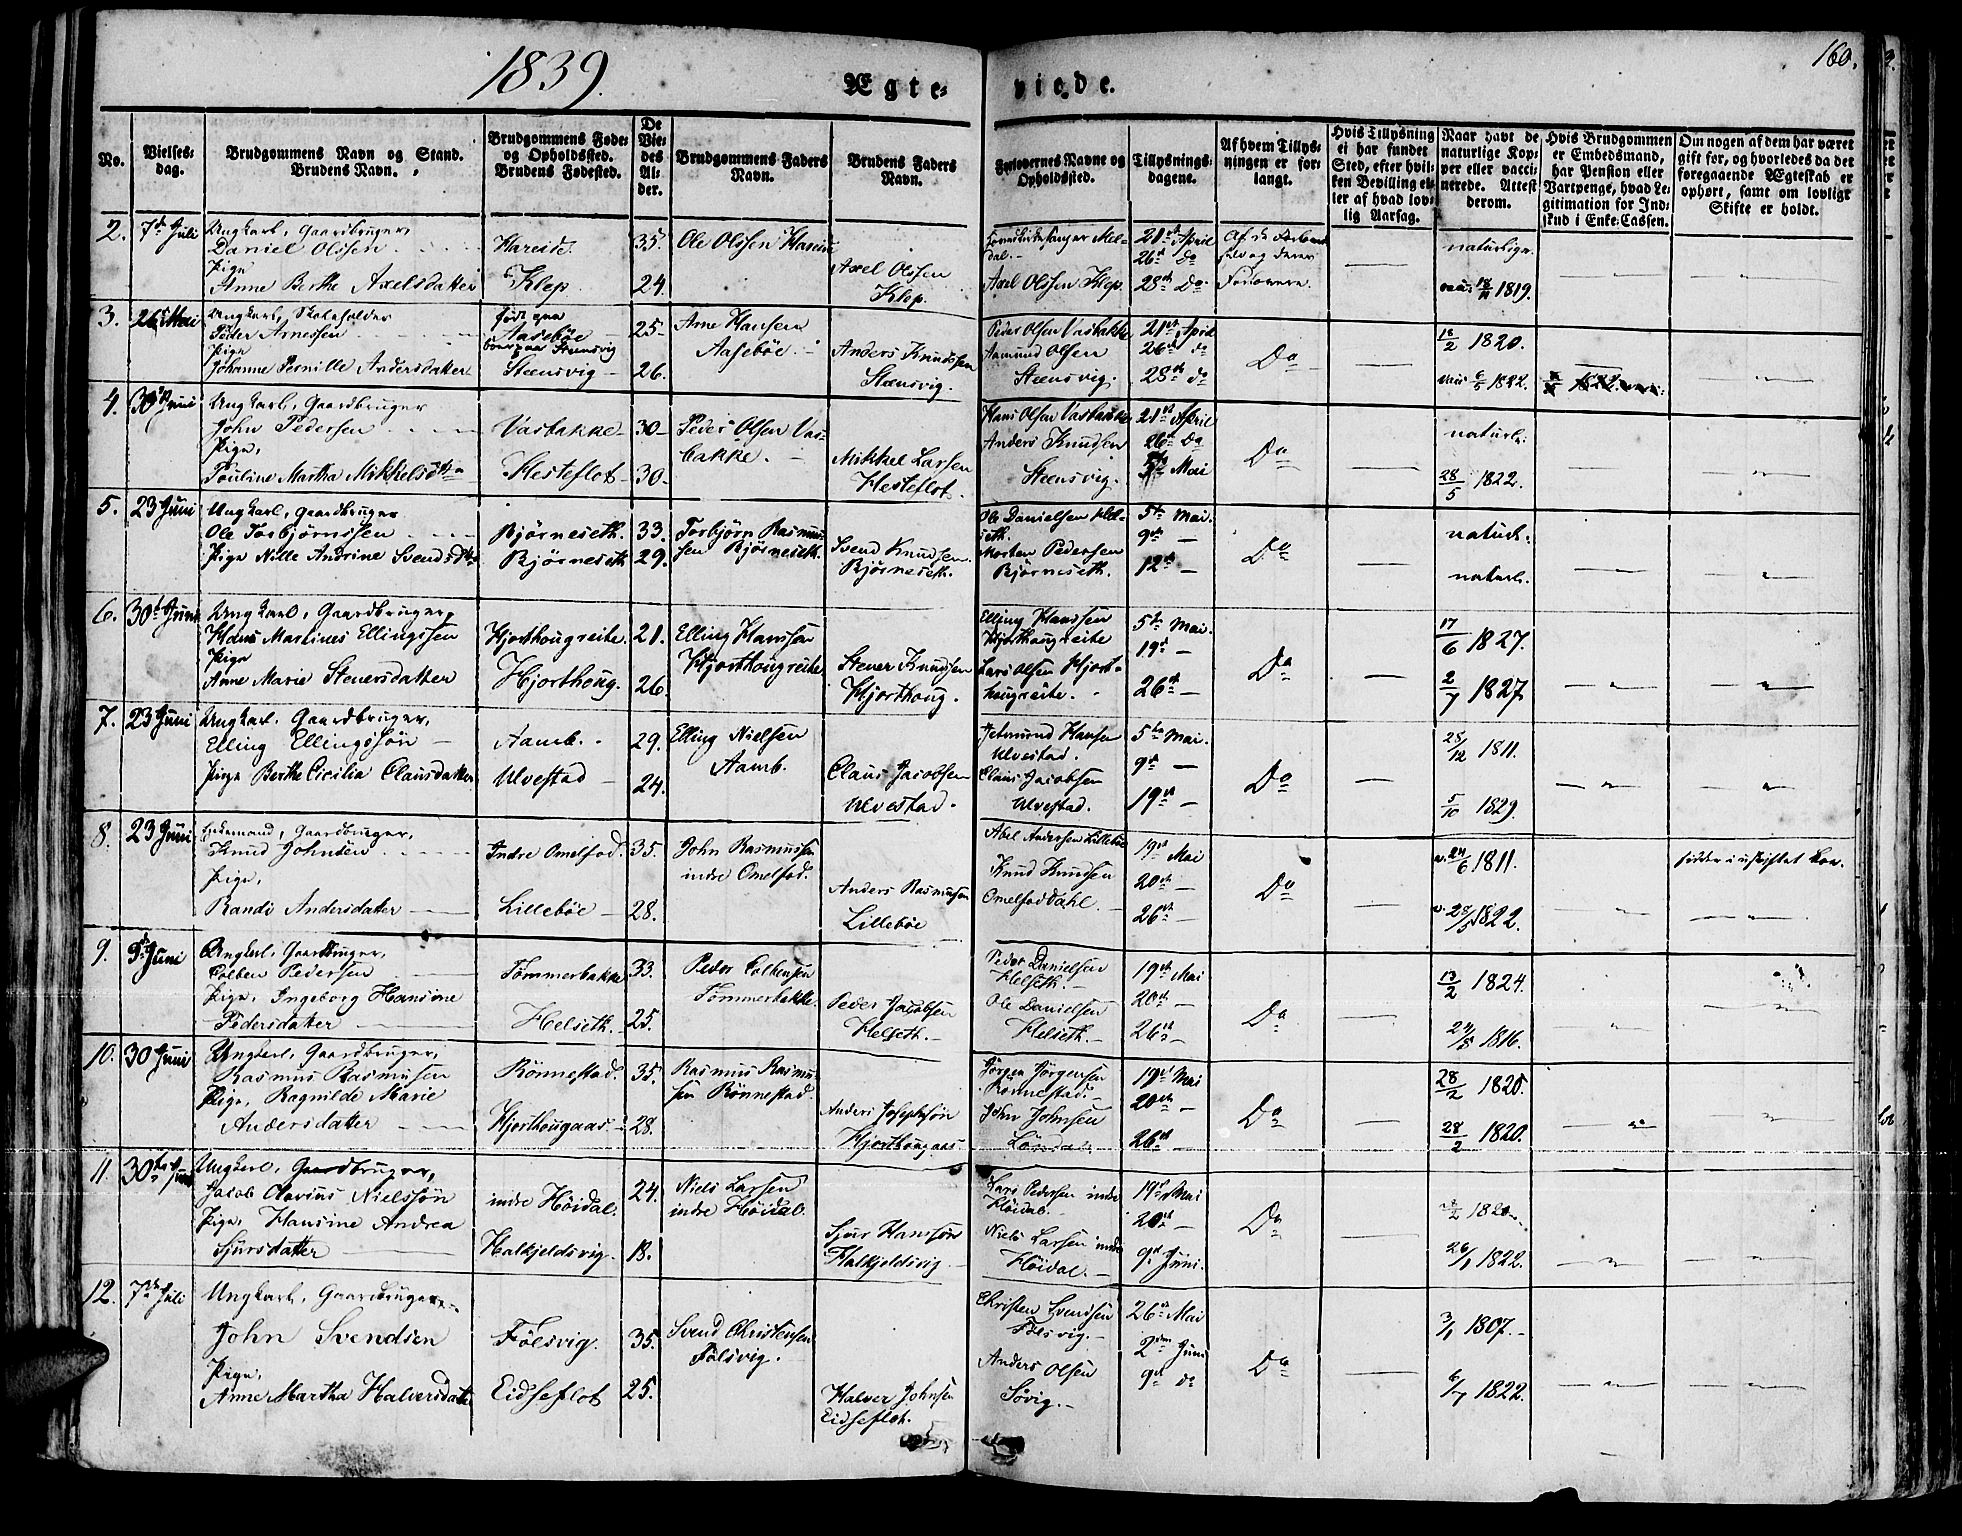 1839.
Ægte-
viede.
160.
No.
Vielses-
dag.
Brudgommens Navn og Stand.
Brudens Navn.
Brudgommens Føde-
og Opholdssted.
Brudens Fødested.
De
Vie-
des
Al-
der.
Brudgommens Faders
Navn.
Brudens Faders
Navn.
Forlovernes Navne og
Opholdssted.
Tillysnings-
dagene.
Af hvem Tillys-
ningen er for-
langt.
Hvis Tillysning
ei har fundet
Sted, efter hvil-
ken Bevilling el-
ler af hvad lov-
lig Aarsag.
Naar havt de
naturlige Kop-
per eller vacci-
nerede. Attest
derom.
Hvis Brudgommen
er Embedsmand,
har Pension eller
Vartpenge, hvad Le-
gitimation for Ind-
skud i Enke-Cassen.
Om nogen af dem har været
gift for, og hvorledes da det
foregaaende Ægteskab er
ophørt, samt om lovligt
Skifte er holdt.
2. 7de Juli Ungkarl, Gaardbruger
Daniel Olssen Hareide 35. Ole Olssen Hareide
Pige
Anne Berthe Axelsdatter Klep. 24. Axel Olssen
Klep.
Axel Olssen Klep
21de April
26de Do
28de Do
naturlige
1819.
3. 26 Mai Ungkarl, Skoleholder
Peder Arnessen født paa
Aasebøe 25 Arne Hansen
Aasebøe.
Pige
Johanne Pernille Andersdatter Steensvig 26. Anders Knudssen
Steensvig.
Peder Olsen Vasbakke
Aamund Olsen
Steensvig.
21de April
26de do
28de do
Do
18/2 1820.
6/5 1822.
4. 30 Juni Ungkarl, Gaardbruger
John Pedersen Vasbakke 30 Peder Olsen Vas-
bakke.
Pige,
Pauline Martha Mikkelsdtr Hesteflot 30 Mikkel Larsen
Hesteflot.
Hans Olsen Vasbakke
Anders Knudsen
Steensvig.
21de April
26de Do
5te Mai
Do
naturl:
28/5 1822.
5. 23 Juni Ungkarl, Gaardbruger
Ole Torbjørnssen Bjørneseth. 33. Torbjørn Rasmus-
sen Bjørneseth.
Pige Nille Andrine Svendsdtr Bjørneseth 29. Svend Knudsen
Bjørneseth.
Ole Danielsen Hel-
seth.
Morten Pedersen
Bjørneseth.
5te Mai.
9de
12te
Do
naturl:
naturl:
6. 30te Juni Ungkarl, Gaardbruger,
Hans Martines Ellingssen Hjorthougreite. 21. Elling Hanssen
Hjorthougreite
Pige
Anne Marie Steuersdatter Hjorthoug. 26 Steuer Knudsen
Hjorthoug.
Elling Hanssen
Hjorthougreite
Lars Olsen Hjort-
hougreite.
5te Mai.
19de
26de
Do
17/6 1827.
2/7 1827
7. 23 Juni Ungkarl, Gaardbruger,
Elling Ellingssøn Aamb. 29. Elling Nielsen
Aamb.
Pige Berthe Cicilia Clausdatter Ulvestad 24. Claus Jacobsen
Ulvestad.
Jetmund Hansen
Ulvestad.
Claus Jacobsen
Ulvestad.
5te Mai.
9de
19de
Do
28/12 1811.
5/10 1829.
8. 23 Juni Enkemand, Gaardbruger,
Knud Johnsen Indre Omelfod. 35. John Rasmussen
indre Omelfod.
Pige,
Randi Andersdatter Lillebøe 28. Anders Rasmussen
Lillebøe
Abel Andersen Lillebøe
Knud Knudsen
Omelfoddahl.
19de Mai
20de
26de
Do
v. 24/6 1811.
v. 28/5 1822.
9. Juni Ungkarl, Gaardbruger,
Colben Pedersen Tømmerbakke 33. Peder Colbensen
Tømmerbakke.
Pige, Ingeborg Hansine
Pedersdatter Helseth. 25. Peder Jacobsen
Helseth.
Peder Danielsen
Helseth.
Ole Danielsen
Helseth.
19de Mai
20de
26de
Do
13/2 1824.
1816.
10. 30 Juni Ungkarl, Gaardbruger,
Rasmus Rasmusen Rønnestad. 35. Rasmus Rasmus-
sen Rønnestad.
Pige, Ragnilde Marie
Andersdatter Hjorthougaas 28. Anders Josephsøn
Hjorthougaas
Jørgen Jørgensen
Rønnestad.
John Johnsen
19de Mai
20de
26de
Do
28/2 1825.
28/2 1820.
11. 30te Juni Ungkarl, Gaardbruger,
Jacob Olavius Nielssøn indre Høidal. 24. Niels Larsen
indre Høidal.
Pige, Hansine Andrea
Sjursdatter Halkjeldsvig. 18. Sjur Hansøn
Halkjeldsvig
Lars Pedersen indre
Høidal.
Niels Larsen indre
Høidal.
19de Mai
20de
9de Juni.
Do
26/1 1822.
12. 7de Juli Ungkarl, Gaardbruger
John Svendsen Følsvig. 35. Svend Christensen
Følsvig.
Pige,
Anne Martha Halversdatter Eidseflot 25. Halver Johnsen
Eidseflot.
Christen Svendsen
Følsvig.
Anders Olsen
Søvig.
26de Mai
2den Juni
9de do
Do
3/1 1807.
6/7 1822.